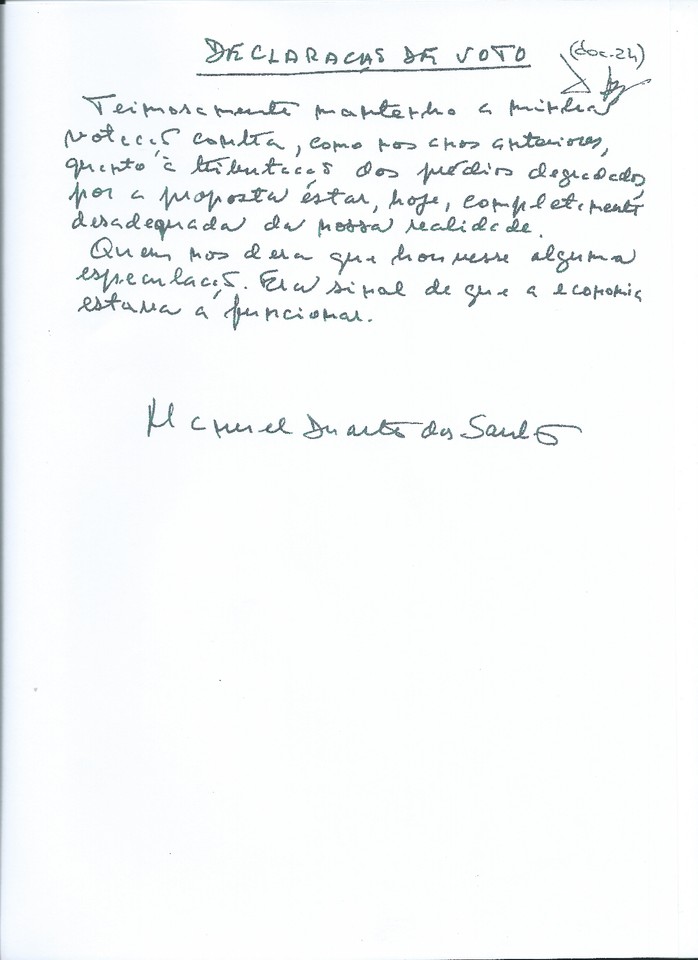 DECLARAÇÃO DE VOTO
(doc. 24)
Teimosamente mantenho a minha
votação contra, como nos anos anteriores,
quanto à tributação dos prédios degradados
por a proposta estar, hoje, completamente
desadequada da nossa realidade.
Quem nos dera que houvesse alguma
especulação. Era sinal de que a economia
estava a funcionar.
Manuel Duarte dos Santos